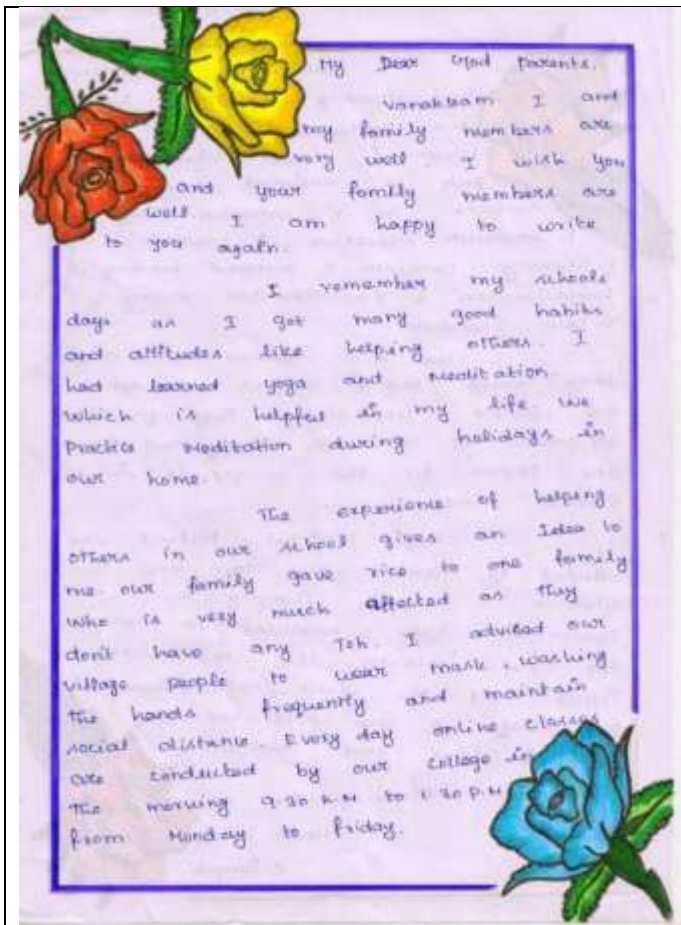 My Dear God Parents,
Vanakkam I and
my family members are
very well. I wish you
and your family members are
well. I am happy to write
to you again.
I remember my schools
days as I got many good habits
and attitudes like helping others. I
had learned yoga and meditation.
which is helpful in my life. we
Practice Meditation during holidays in
our home.
The experience of helping
others in our school gives an Idea to
me. our family gave rice to one family
who is very much affected as they
don't have any Job. I advised our
village people to wear mask, washing
the hands frequently and maintain
social distance. Every day online classes
are conducted by our college in
the morning 9.30 A.M. to 1.30 P.M
from Monday to Friday.